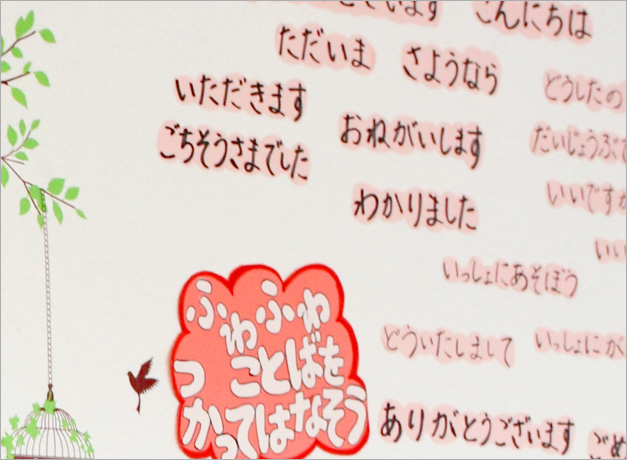 ございます
こんにちは
ただいま
さようなら
どうしたの
いただきます
おねがいします
だいじょうぶ
ごちそうさまでした
いいですか
わかりました
いい
いっしょにあそぼう
どういたしまして
いっしょに
ふわふわ
ことばを
つかってはなそう
ありがとうございます